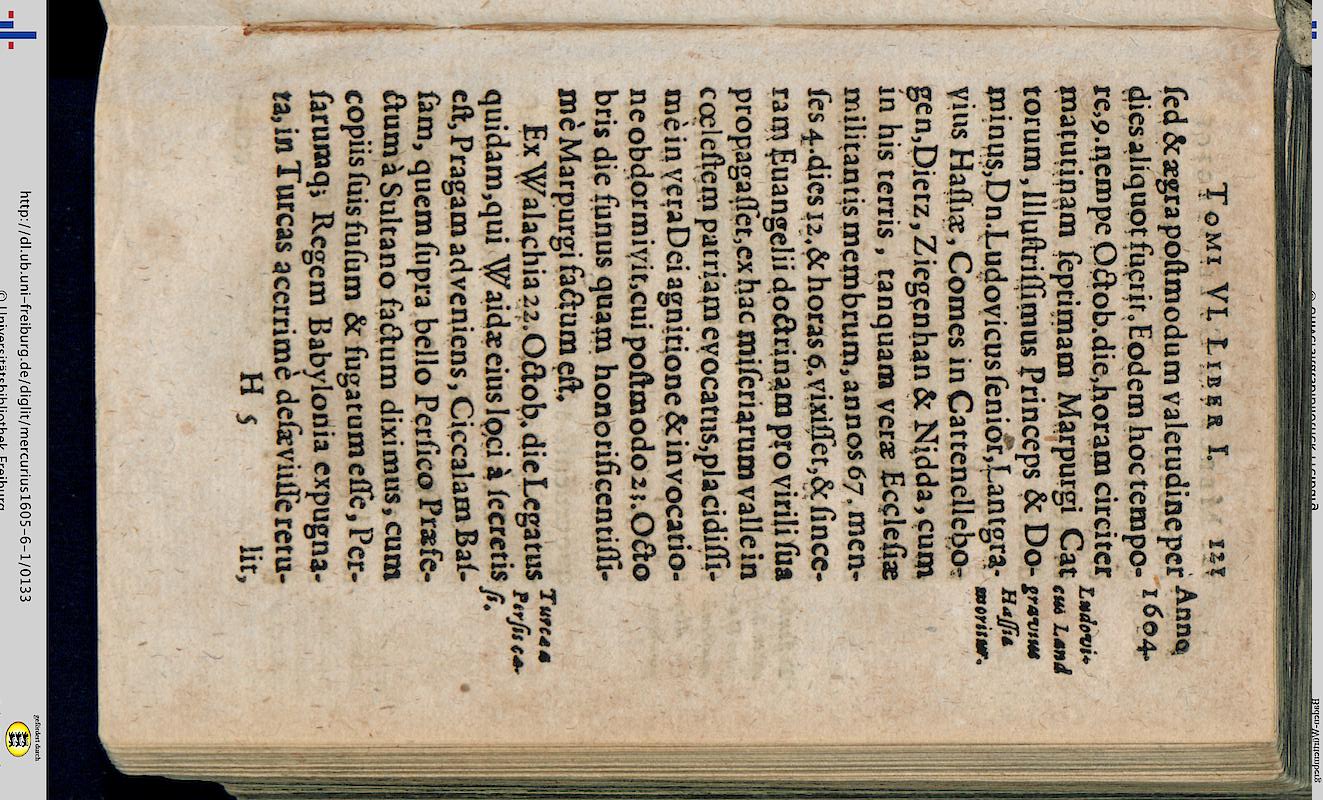 TOMI VI. LIBER I. 121
ſed & ægra poſtmodum valetudine per
dies aliquot fuerit. Eodem hoc tempo-
re, 9. nempe Octob. die, horam circiter
matutinam ſeptimam Marpurgi Cat
torum, Illuſtriſſimus Princeps & Do-
minus, Dn. Ludovicus ſenior, Lantgra-
vius Haſſiæ, Comes in Cattenellebo-
gen, Dietz, Ziegenhan & Nidda, cum
in his terris, tanquam veræ Eccleſiæ
militantis membrum, annos 67. men-
ſes 4. dies 12. & horas 6. vixiſſet, & ſince-
ram Euangelii doctrinam pro virili ſua
propagaſſet, ex hac miſeriarum valle in
cœleſtem patriam evocatus, placidiſſi-
mè in vera Dei agnitione & invocatio-
ne obdormivit, cui poſtmodo 23. Octo
bris die funus quam honorificentiſſi-
mè Marpurgi factum eſt.
Ex Walachia 22. Octob. die Legatus
quidam, qui Waidæ eius loci à ſecretis
eſt, Pragam adveniens, Ciccalam Baſ-
ſam, quem ſupra bello Perſico Præfe-
ctum à Sultano factum diximus, cum
copiis ſuis fuſum & fugatum eſſe, Per-
ſarumq; Regem Babylonia expugna-
ta, in Turcas acerrimè deſæviiſſe retu-
H 5 lit,
Anno
1604.
Ludovi-
cus Land
gravius
Haſſiæ
moritur.
Turcæ a
Perſis cæ-
ſi.
http://dl.ub.uni-freiburg.de/diglit/mercurius1605-6-1/0133
© Universitätsbibliothek Freiburg
gefördert durch